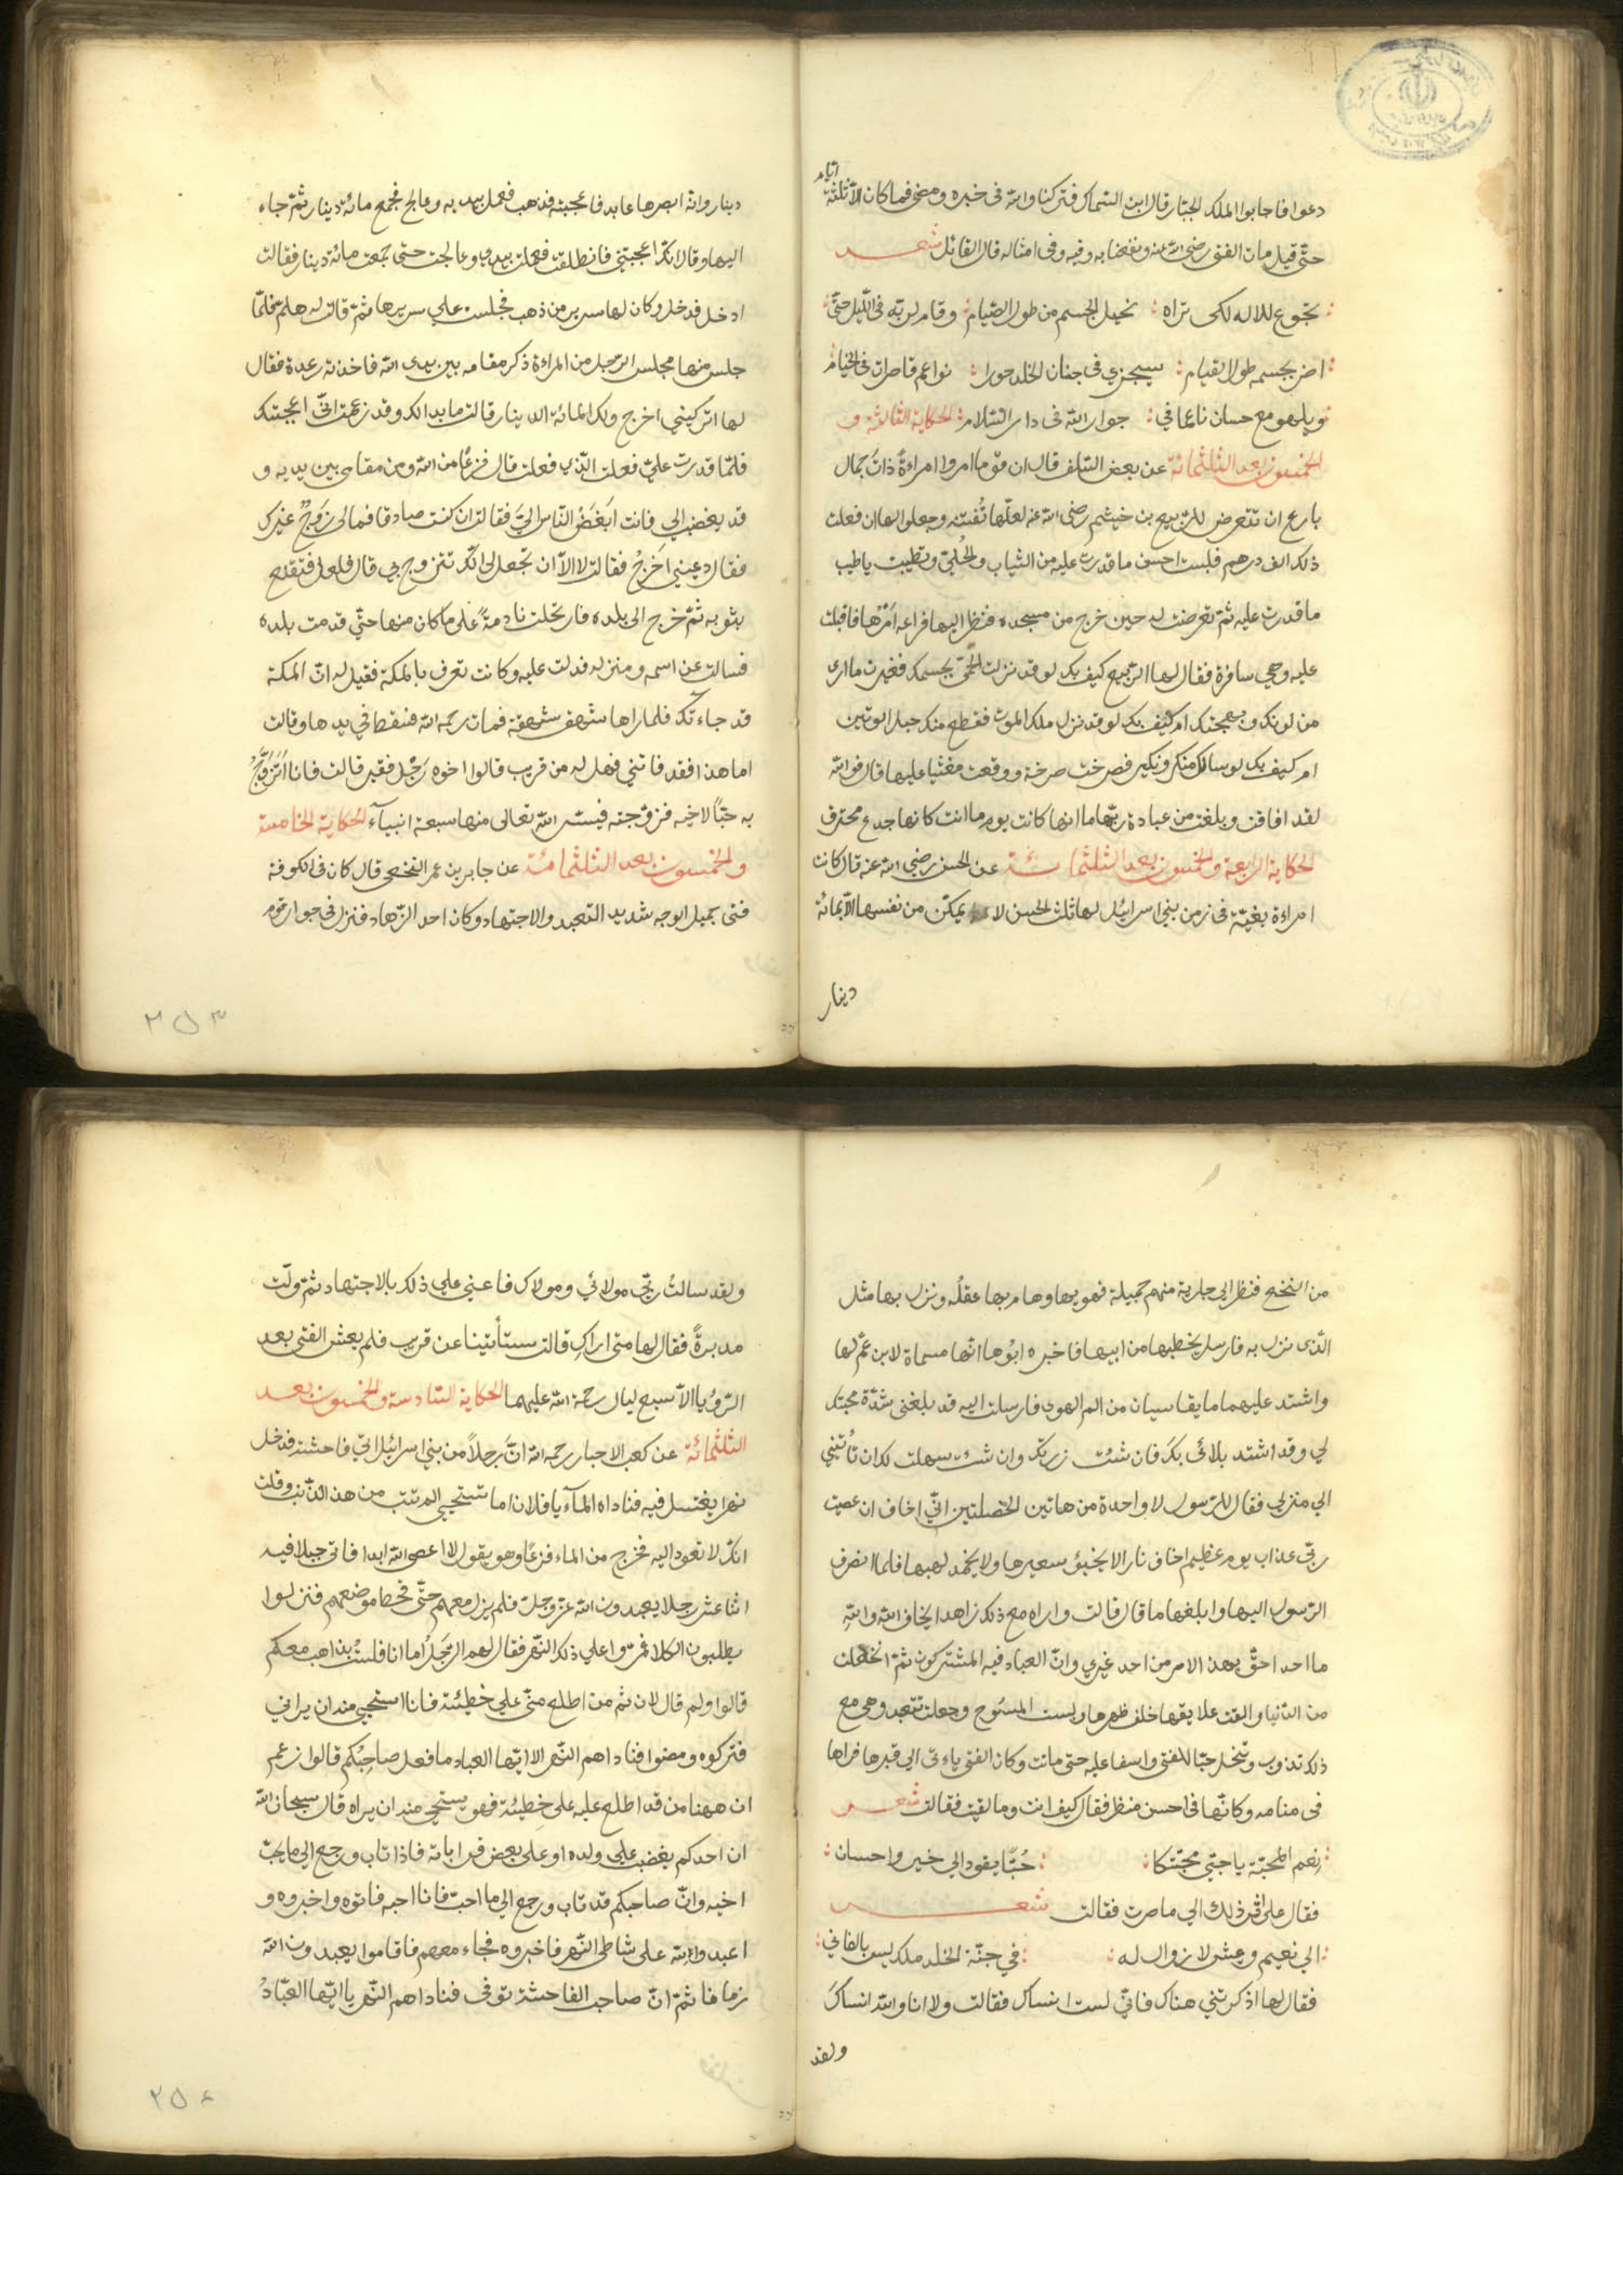 دعوا فاجابوا الملك الجبار قال ابن السماك فتركنا والله في خبره ومضى فما كان الا ثلثة ايام
حتى قيل مات الفتى رضى الله عنه ونفعنا به وفيه وفى امثاله قال القائل شعر
تجوع للاله لكى تراه نحيل الجسم من طول الصيام وقام لربه فى الليل حتى
اضر بجسمه طول القيام سيجزي فى جنان الخلد حورا نواعم قاصرات فى الخيام
ويلهو مع حسان ناعما في جوار الله فى دار السلام الحكاية الثالثة و
الخمسون بعد الثلثمائة عن بعض السلف قال ان قوما امروا امراءة ذات جمال
بارع ان تتعرض للربيع بن خيثم رضى الله عنه لعلها تفتنه وجعلوا لها ان فعلت
ذلك الف درهم فلبست احسن ما قدرت عليه من الثياب والحلى وتطيبت باطيب
ما قدرت عليه ثم تعرضت له حين خرج من مسجده فنظر اليها فراعه امرها فاقبلت
عليه وهى سافرة فقال لها الربيع كيف بك لو قد نزلت الحمى بجسمك فغيرت ما ارى
من لونك وبهجتك ام كيف بك لو قد نزل ملك الموت فقطع منك حبل الوتين
ام كيف بك لو سالك منكر ونكير فصرخت صرخة ووقعت مغشيا عليها قال فوالله
لقد افاقت وبلغت من عبادة ربها ما انها كانت يوم ماتت كانها جذع محترق
الحكاية الرابعة والخمسون بعد الثلثمائة عن الحسن رضى الله عنه قال كانت
امراءة بغية فى زمن بني اسرائيل لها ثلث الحسن لا يمكن من نفسها الا بمائة
دينار
دينار وانه ابصرها عابد فاعجبته فذهب فعمل بيديه وعالج فجمع مائة دينار ثم جاء
اليها وقال انك اعجبتني فانطلقت فعملت بيدي وعالجت حتى جمعت مائة دينار فقالت
ادخل فدخل وكان لها سرير من ذهب فجلست على سريرها ثم قالت له هلم فلما
جلس منها مجلس الرجل من المراءة ذكر مقامه بين يدى الله فاخذته رعدة فقال
لها اتركيني اخرج ولك المائة الدينار قالت ما بدا لك وقد زعمت انى اعجبتك
فلما قدرت علي فعلت الذي فعلت قال فزعا من الله ومن مقامى بين يديه و
قد بغضت الي فانت ابغض الناس الي فقالت ان كنت صادقا فمالى زوج غيرك
فقال دعيني اخرج فقالت لا الا ان تجعل لى انك تتزوج بي قال فلعل فتقنع
بثوبه ثم خرج الى بلده فارتحلت نادمة على ما كان منها حتى قدمت بلده
فسالت عن اسمه ومنزله فدلت عليه وكانت تعرف بالملكة فقيل له ان الملكة
قد جاءتك فلما راها شهق شهقة فمات رحمه الله فسقط في يدها وقالت
اما هذا فقد فاتني فهل له من قريب قالوا اخوه رجل فقير قالت فانا اتزوج
به حبا لاخيه فتزوجته فيسر الله تعالى منها سبعة انبياء الحكاية الخامسة
والخمسون بعد الثلثمائة عن جابر بن عمر النخعى قال كان فى الكوفة
فتى جميل الوجه شديد التعبد والاجتهاد وكان احد الزهاد فنزل فى جوار قوم
٢٥٣
من النخع فنظر الى جارية منهم جميلة فهويها وهام بها عقله ونزل بها مثل
الذى نزل به فارسل يخطبها من ابيها فاخبره ابوها انها مسماة لابن عم لها
واشتد عليهما ما يقاسيان من الم الهوى فارسلت اليه قد بلغنى شدة محبتك
لي وقد اشتد بلائى بك فان شئت زرتك وان شئت سهلت لك ان تأتيني
الى منزلي فقال للرسول لا واحدة من هاتين الخصلتين اني اخاف ان عصيت
ربى عذاب يوم عظيم اخاف نارا لا يخبؤ سعيرها ولا يخمد لهبها فلما انصرف
الرسول اليها وابلغها ما قال قالت واراه مع ذلك زاهدا يخاف الله والله
ما احد احق بهذ الامر من احد غيري وان العباد فيه المشتركون ثم انخلعت
من الدنيا والقت علايقها خلف ظهرها ولبست المسوح وجعلت تتعبد وهى مع
ذلك تذوب وتنحل حبا للفتى واسفا عليه حتى ماتت وكان الفتى ياءتى الى قبرها فراها
فى منامه وكانها فى احسن منظر فقال كيف انت وما لقيت فقالت شعر
نعم المحبة يا حبي محبتكا حبا يقود الى خير واحسان
فقال على اثر ذلك الى ما صرت فقالت شعر
الى نعيم وعيش لا زوال له في جنة الخلد ملك ليس بالفاني
فقال لها اذكرتني هناك فاني لست انساك فقالت ولا انا والله انساك
ولقد
ولقد سالت ربي مولائي ومولاك فاعني على ذلك بالاجتهاد ثم ولت
مدبرة فقال لها متى اراك قالت ستأتينا عن قريب فلم يعش الفتى بعد
الرؤيا الا سبع ليال رحمة الله عليهما الحكاية السادسة والخمسون بعد
الثلثمائة عن كعب الاحبار رحمه الله ان رجلا من بني اسرائيل اتي فاحشة فدخل
نهرا يغتسل فيه فناداه الماء يا فلان اما تستحيي الم تتب من هذ الذنب وقلت
انك لا تعود اليه فخرج من الماء فزعا وهو يقول لا اعصى الله ابدا فاتى جبلا فيه
اثنا عشر رجلا يعبدون الله عز وجل فلم يزل معهم حتى قحطا موضعهم فنزلوا
يطلبون الكلاء فمروا على ذلك النهر فقال لهم الرجل اما انا فلست بذاهب معكم
قالوا ولم قال لان ثم من اطلع منى على خطيئة فانا استحيي منه ان يراني
فتركوه ومضوا فناداهم النهر الا ايها العباد ما فعل صاحبكم قالوا زعم
ان ههنا من قد اطلع عليه على خطيئة فهو يستحيي منه ان يراه قال سبحان الله
ان احدكم يغضب على ولده او على بعض قراباته فاذا تاب ورجع الى ما يحب
احبه وان صاحبكم قد تاب ورجع الى ما احب فانا احبه فاتوه واخبروه و
اعبدوا الله على شاطى النهر فاخبروه فجاء معهم فاقاموا يعبدون الله
زمانا ثم ان صاحب الفاحشة توفى فناداهم النهر يا ايها العباد
٢٥٤